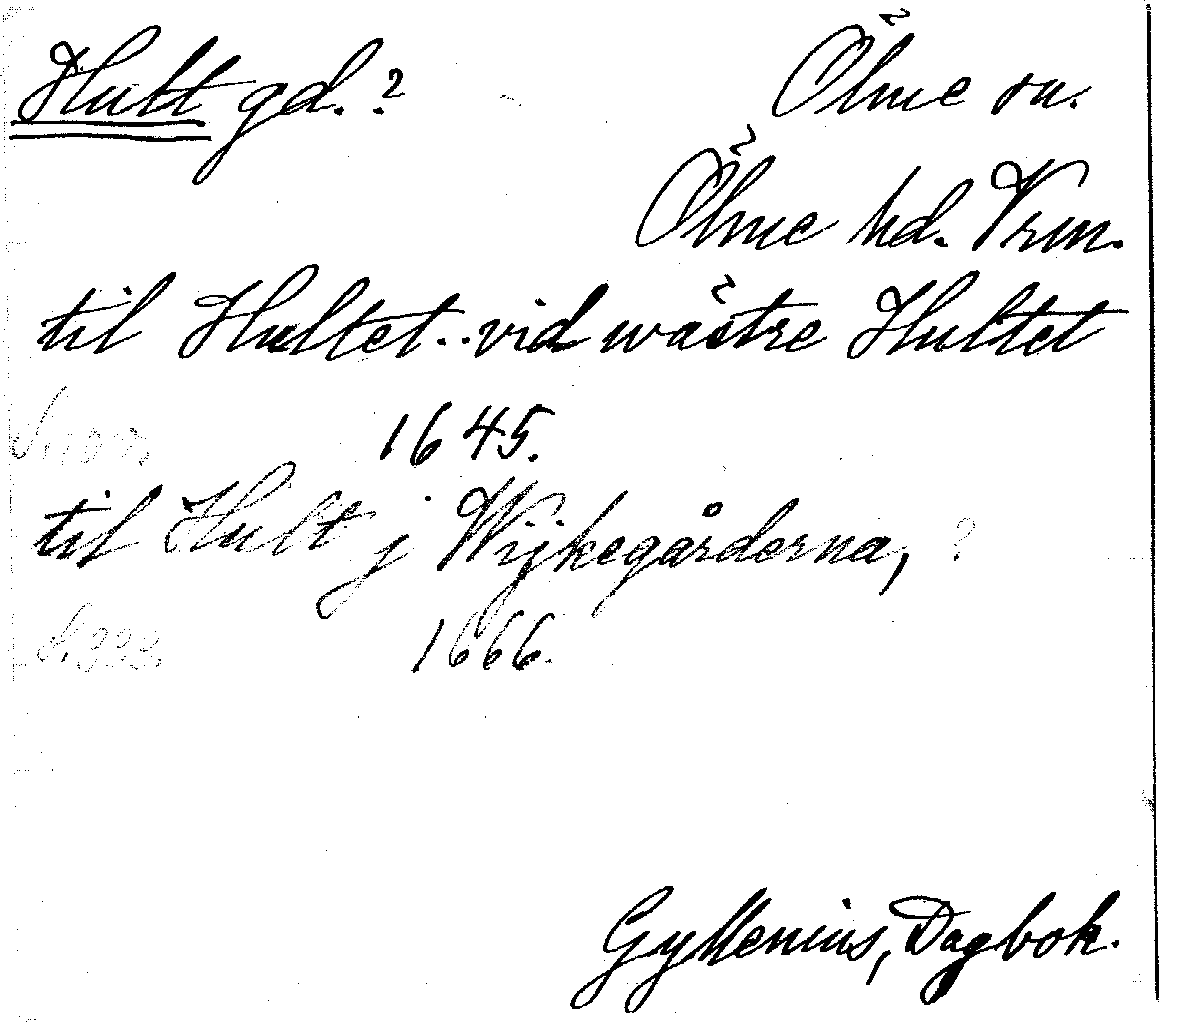 Hult gd.? Ölme sn.
Ölme hd. Vrm.
til Hultet..vid wästre Hultet
1645.
til Hult j Wijkegårderna, ?
S. 333. 1666.
Gyllenius, Dagbok.